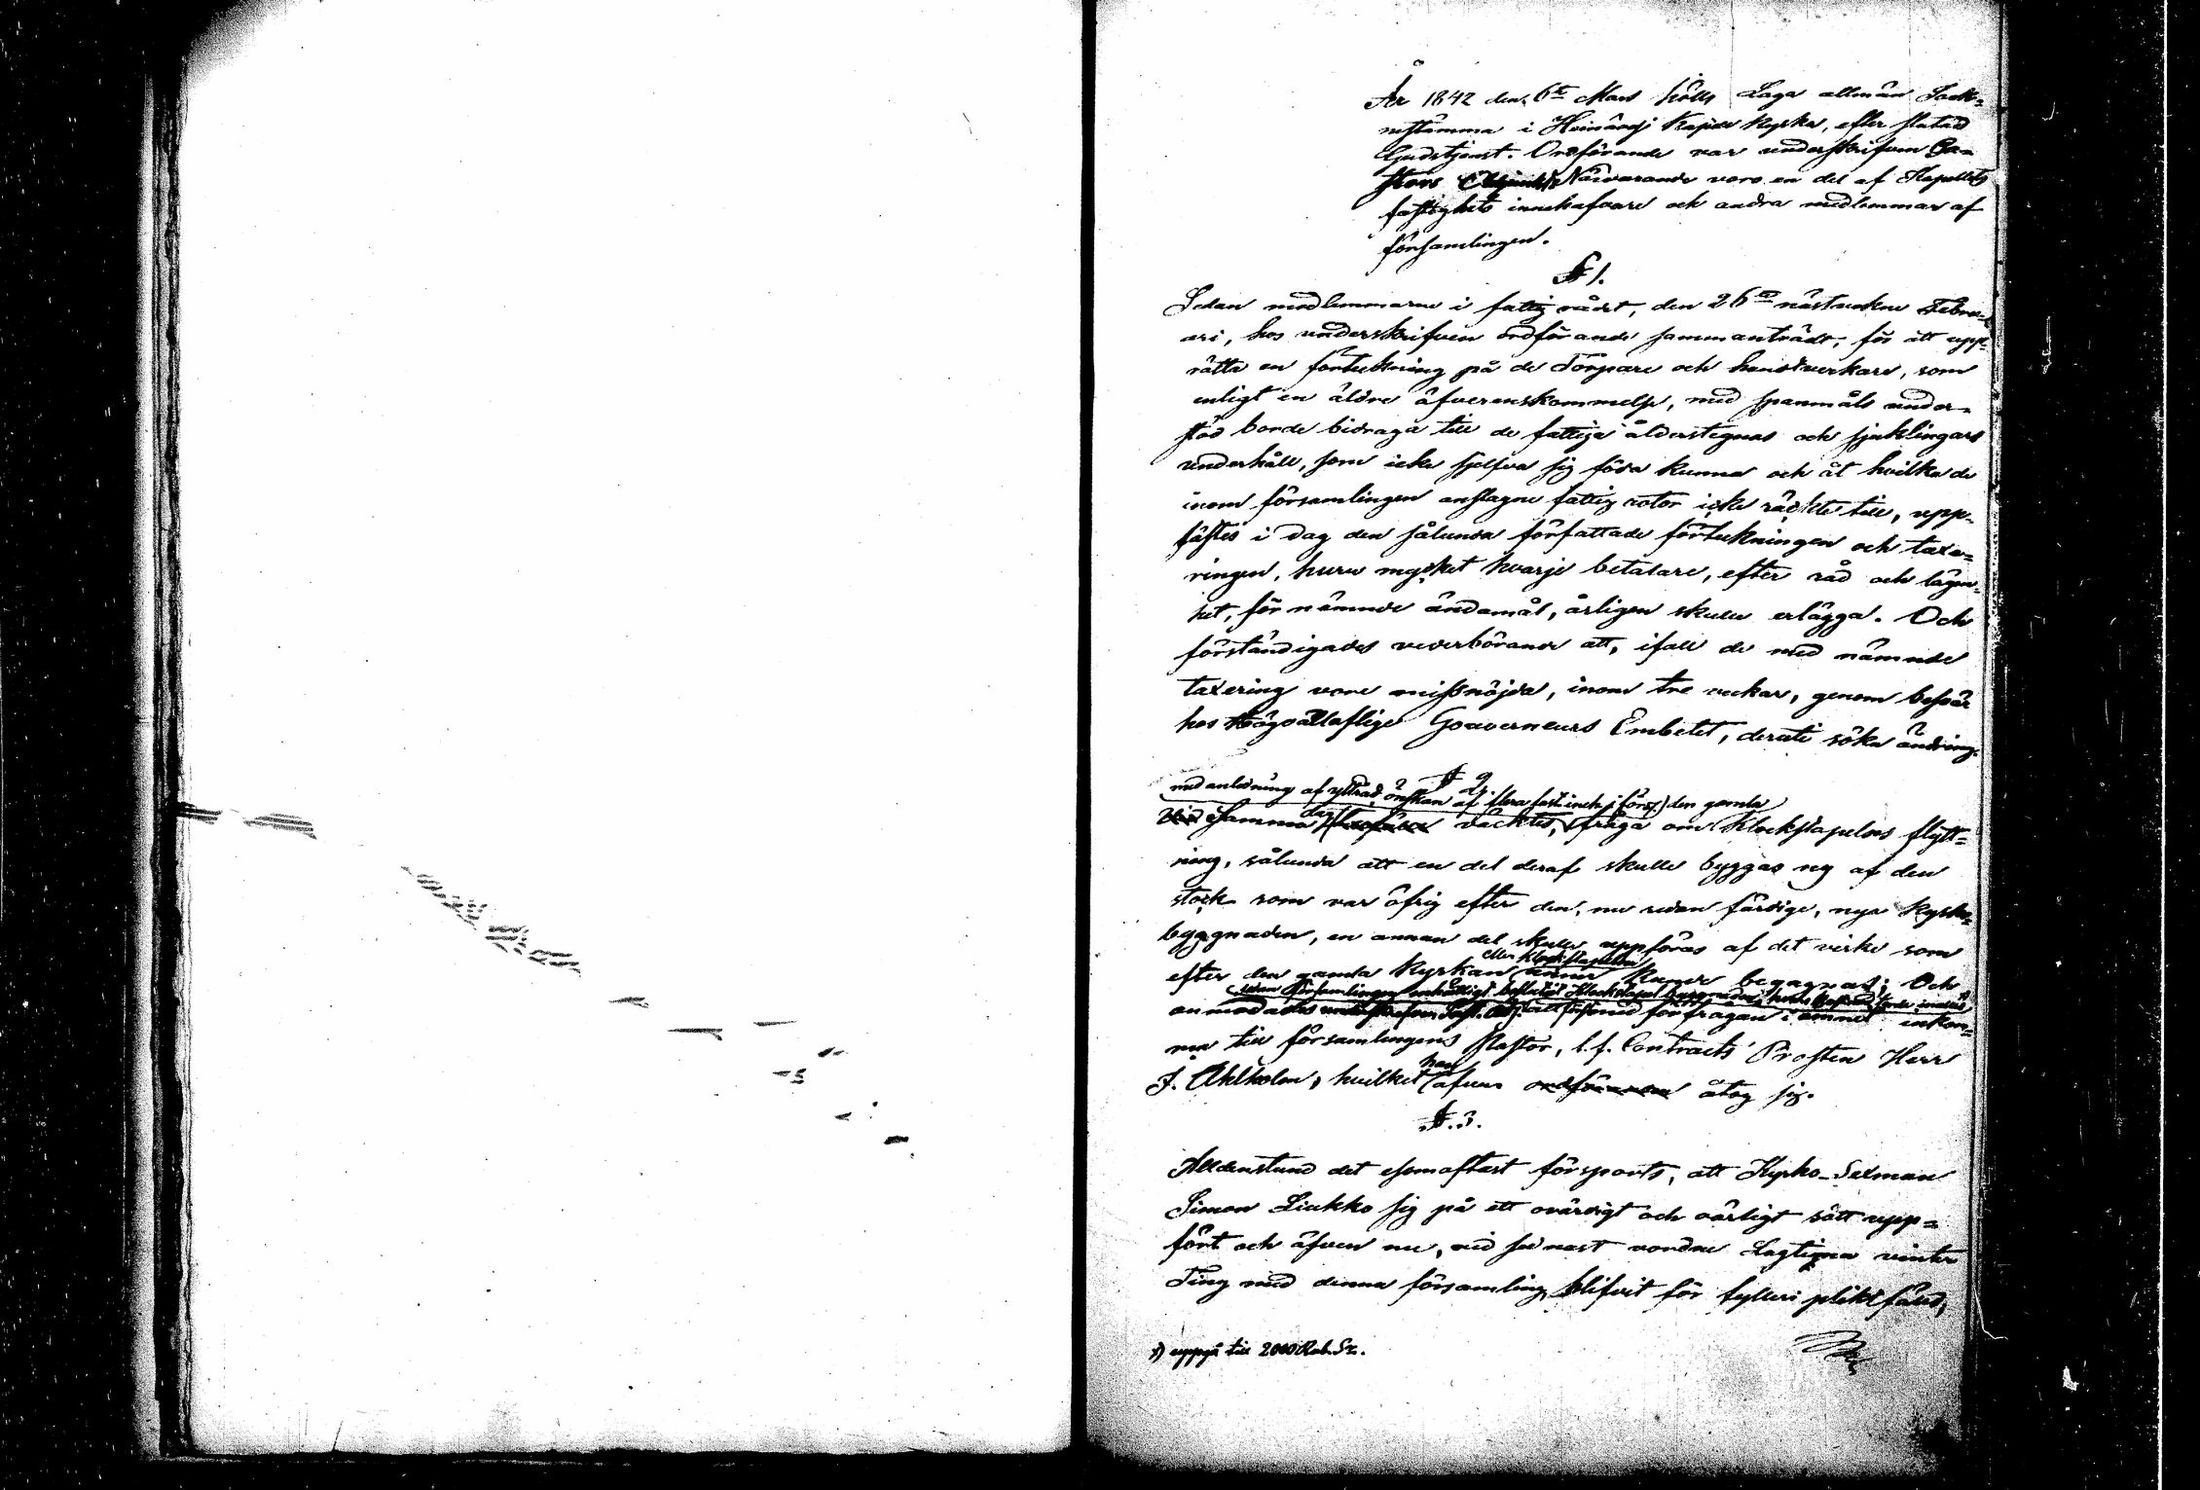 År 1842 den 6te Mars hölls Laga allmän Sock-
nestämma i Hvinänsj Kapells Kyrka, efter slutad
Gudstjenst. Ordförande var underskrifven Pa-
stors Närvarande voro en del af Kapellets
fastighets innehafvare och andra medlemmar af
församlingen.
§ 1.
Sedan medlemmarne i fattig rådet, den 26te nästvekne Febru-
ari, hos underskrifven ordförande sammanträdt, för att upp-
rätta en förtekning på de Torpare och handtverkare, som
enligt en äldre öfverenskommelse, med spanmåls under-
stöd borde bidraga till de fattiga ålderstegnas och sjuklingars
underhåll, som icke sjelfva sig föda kunna och åt hvilka de
inom församlingen anslagne fattig rotor icke räckte till, upp-
lästes i dag den sålunda författade förtekningen och taxe-
ringen, huru mycket hvarje betalare, efter råd och lägen-
het, för nämnde ändamål, årligen skulle erlägga. Och
förständigades vederbörande att, ifall de med nämnde
taxering vore missnöjda, inom tre veckor, genom besvär
hos Högvällofliga Gouverneurs Embetet, deruti söka ändring.
§ 2
med anledning af yttrad önskan af flera fast. inneh. i förs. den gamla
Samma dag väcktes fråga om Klockstapelns flytt-
ning, sålunda att en del deraf skulle byggas ny af den
stock som var öfrig efter den, nu redan färdige, nya Kyrko-
byggnaden, en annan del skulle uppföras af det virke som
eller klockstapeln
efter den gamla Kyrkan kunde begagnas; Och
sedan församlingen
anmodades förfrågan i ämnet inkom-
ma till församlingens Pastor, t.f. Contracts Prosten Herr
J. Ahlholm, hvilket han äfven åtog sig.
§. 3.
Alldenstund det esomoftast försports, att Kyrko-Sexman
Simon Liukko sig på ett ovärdigt och oärligt sätt upp-
fört och äfven nu, vid senast Lagtigna vinter
Ting med denna församling blifvit för fylleri pliktfäld,
x) uppgå till 2000 Rub. Sr.